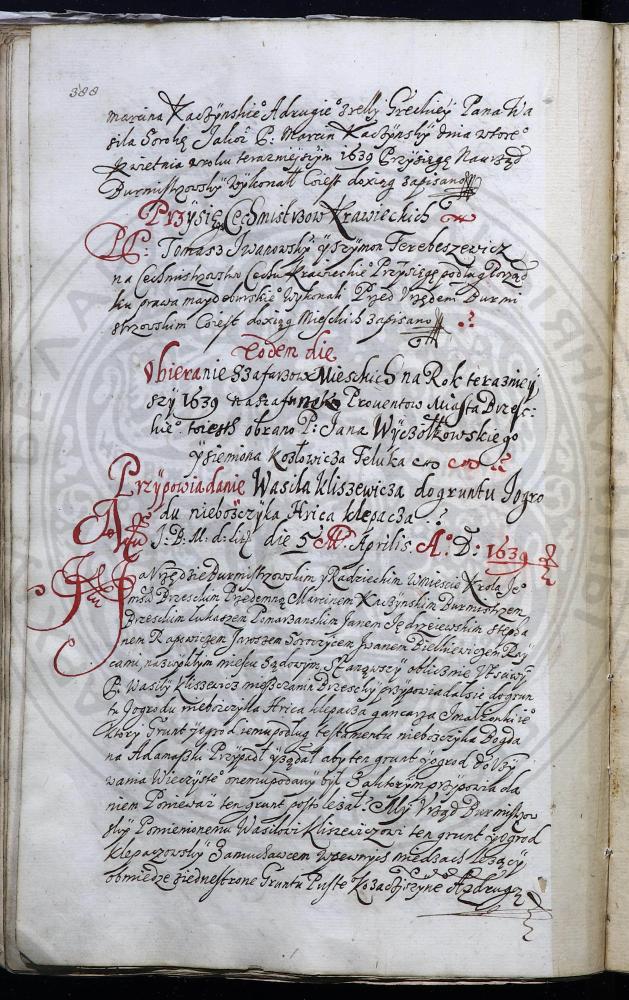 388
Marcina Kaczÿnskie° A drugie° z relij Greckieÿ Pana Wa
sila Sorokę Jakoż P: Marcin Kaczÿnskÿ dnia wtore°
kwietnia wroku teraznieÿszÿm 1639 Przÿsięgę Na vrząd
Burmistrzowskÿ wÿkonał Coiest do xiąg zapisano
Przÿsięga Cechmistrzow krawieckich
PP: Tomasz Jwanowskÿ ÿ Szÿmon Terebeszewicz
na Cechmistrzostwo Cechu krawieckie° Przÿsięgę podług Porząd
ku prawa maÿdeburskie° wÿkonali Przed Vrzędem Burmi
strzowskim Coiest do xiąg Mieskich zapisano
Eodem die
Vbieranie Szafarzow Mieskich na Rok teraznieÿ
szÿ 1639 na szafunek Prouentow Miasta Brzesc-
kie° toiest obrano P: Jana Wÿczołkowskiego
ÿ Siemiona Kozłowicza Feluka
Przÿpowiadanie Wasila kliszewicza do gruntu Jogro
du nieboszczÿka Hrica klepacza
J: B: M: d: lit: die 5 M: Aprilis A°: D: 1639
Na Vrzędzie Burmistrzowskim ÿ Radzieckim w mieście Krola Je°
Mści Brzeskim Przedemną Marcinem Kaczÿnskim Burmistrzem
Brzeskim Lukaszem Janem Sędziewskim Stepha
nem Rapowiczem Jaroszem Iwanem Bielkiewiczem Raÿ
cami, na zwÿkłÿm mieÿscu Sądowÿm, Stanąwszÿ oblicznie
P: Wasilÿ kliszewicz miesczanin Brzeskÿ przÿpowiadał się do grun
tu Jogrodu nieboszczÿka Hrica klepacza garncarza J małżonki ie°
ktorÿ Grunt ÿogrod iemu podług testamentu nieboszczÿka Bogda
na Adamaszka Przÿpadł ÿ żądał abÿ ten grunt ÿogrod do Vżÿ
wania Wieczÿste° onemu podanÿ był Za ktorÿm przÿpowiada
niem Ponieważ ten grunt pusto leżał Mÿ Vrząd Burmistrzow
skÿ Pomienionemu Wasilowi kliszewiczowi ten grunt ÿogrod
klepaczowskÿ w pewnÿch miedzach leżącÿ
obmiedze z iedneÿ strone Gruntu Puste° A z drugie